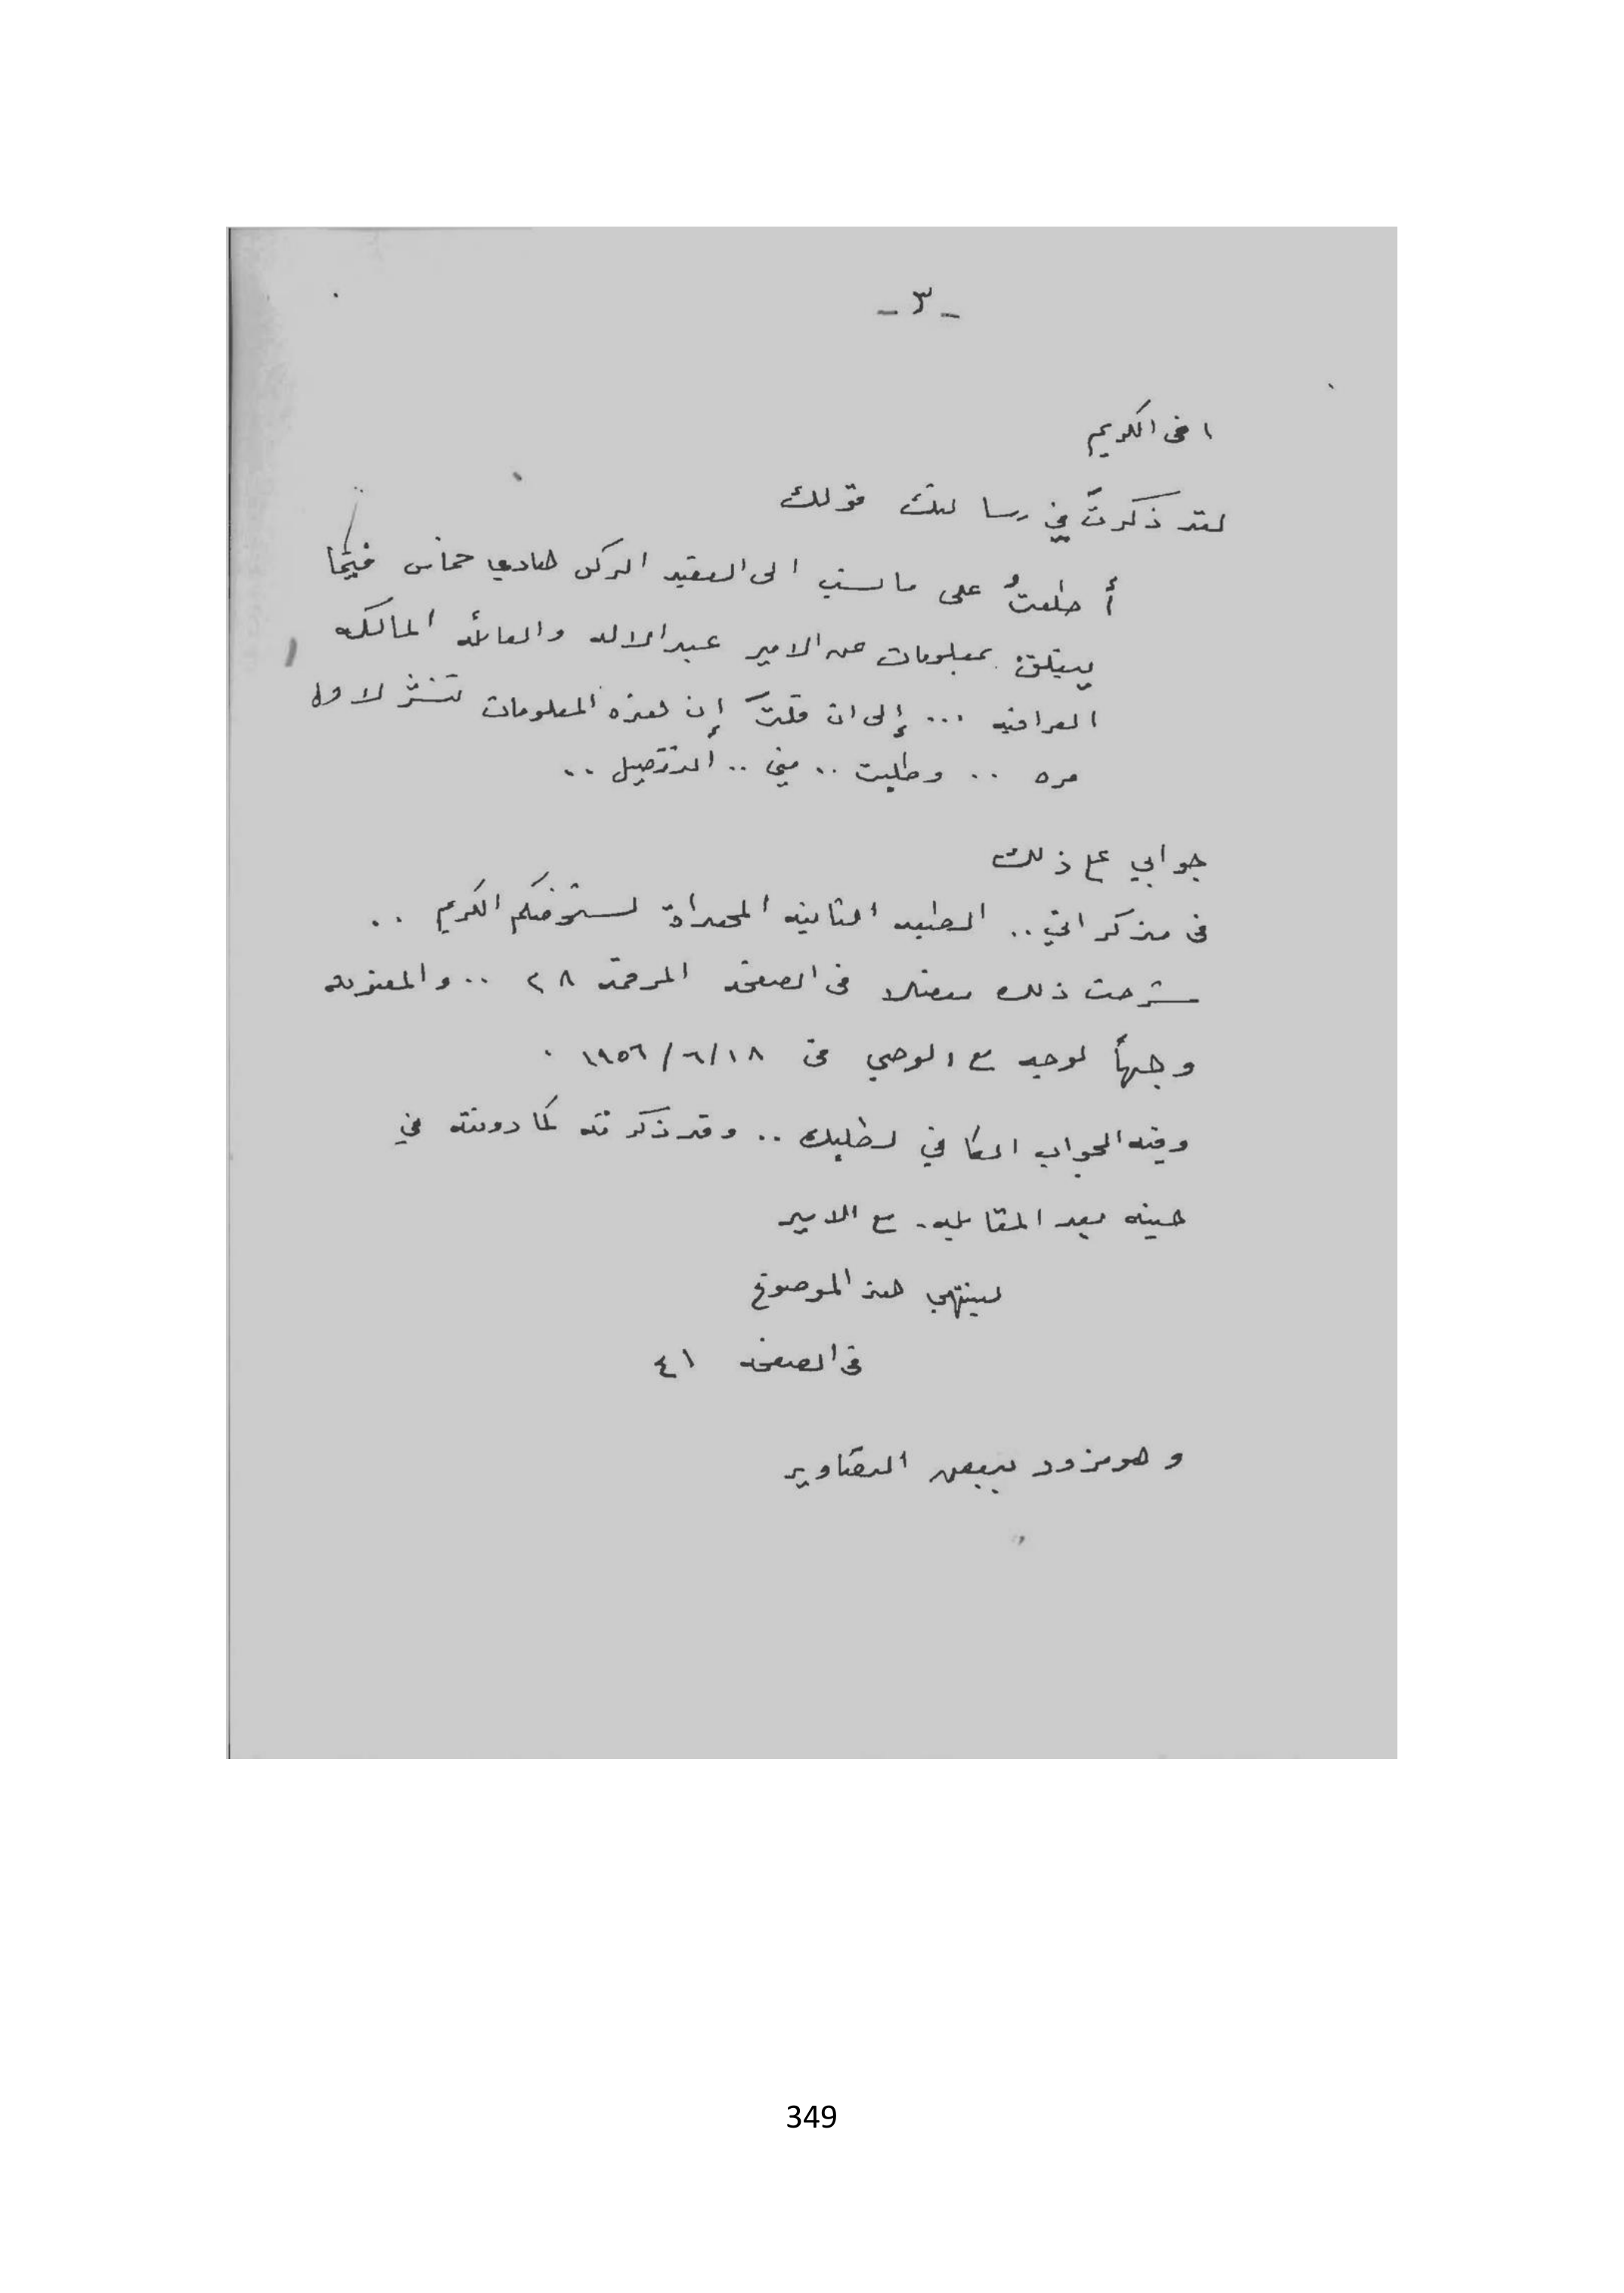 - ٣ -
اخي الكريم
لقد ذكرتَ في رسالتك قولك
أطلعتُ على ما نسب الى العقيد الركن هادي خماس فيما
يتعلق بمعلومات عن الامير عبد الاله والعائله المالكه
العراقيه ... إلى ان قلتَ إن هذه المعلومات تنشر لاول
مره .. وطلبت .. مني .. التفصيل ..
جوابي على ذلك
في مذكراتي .. الطبعه الثانيه المهداة لشخصكم الكريم ..
شرحت ذلك مفصلا في الصفحه المرقمه ٢٨ .. والمعنونه
وجهاً لوجه مع الوصي في ١٩٥٦/٦/١٨ .
وفيه الجواب الكافي لطلبك .. وقد ذكرته كما دونته في
حينه بعد المقابله مع الامير
لينتهي هذا الموضوع
في الصفحه ٤١
وهو مزود ببعض التصاوير
349